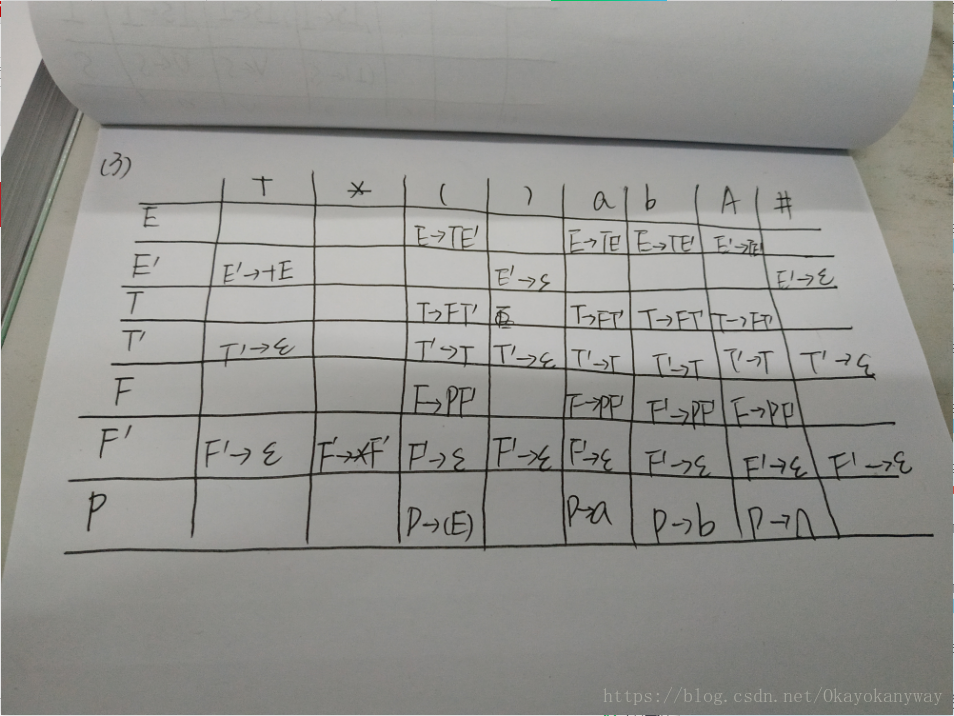 (3)
+ * ( ) a b A #
E E→TE' E→TE' E→TE' E'→TE'
E' E'→+E E'→ε E'→ε
T T→FT' T→FT' T→FT' T→FT'
T' T'→ε T'→T T'→ε T'→T T'→T T'→T T'→ε
F F→PF' F→PF' F'→PF' F→PF'
F' F'→ε F'→*F' F'→ε F'→ε F'→ε F'→ε F'→ε F'→ε
P P→(E) P→a P→b P→Λ
https://blog.csdn.net/Okayokanyway